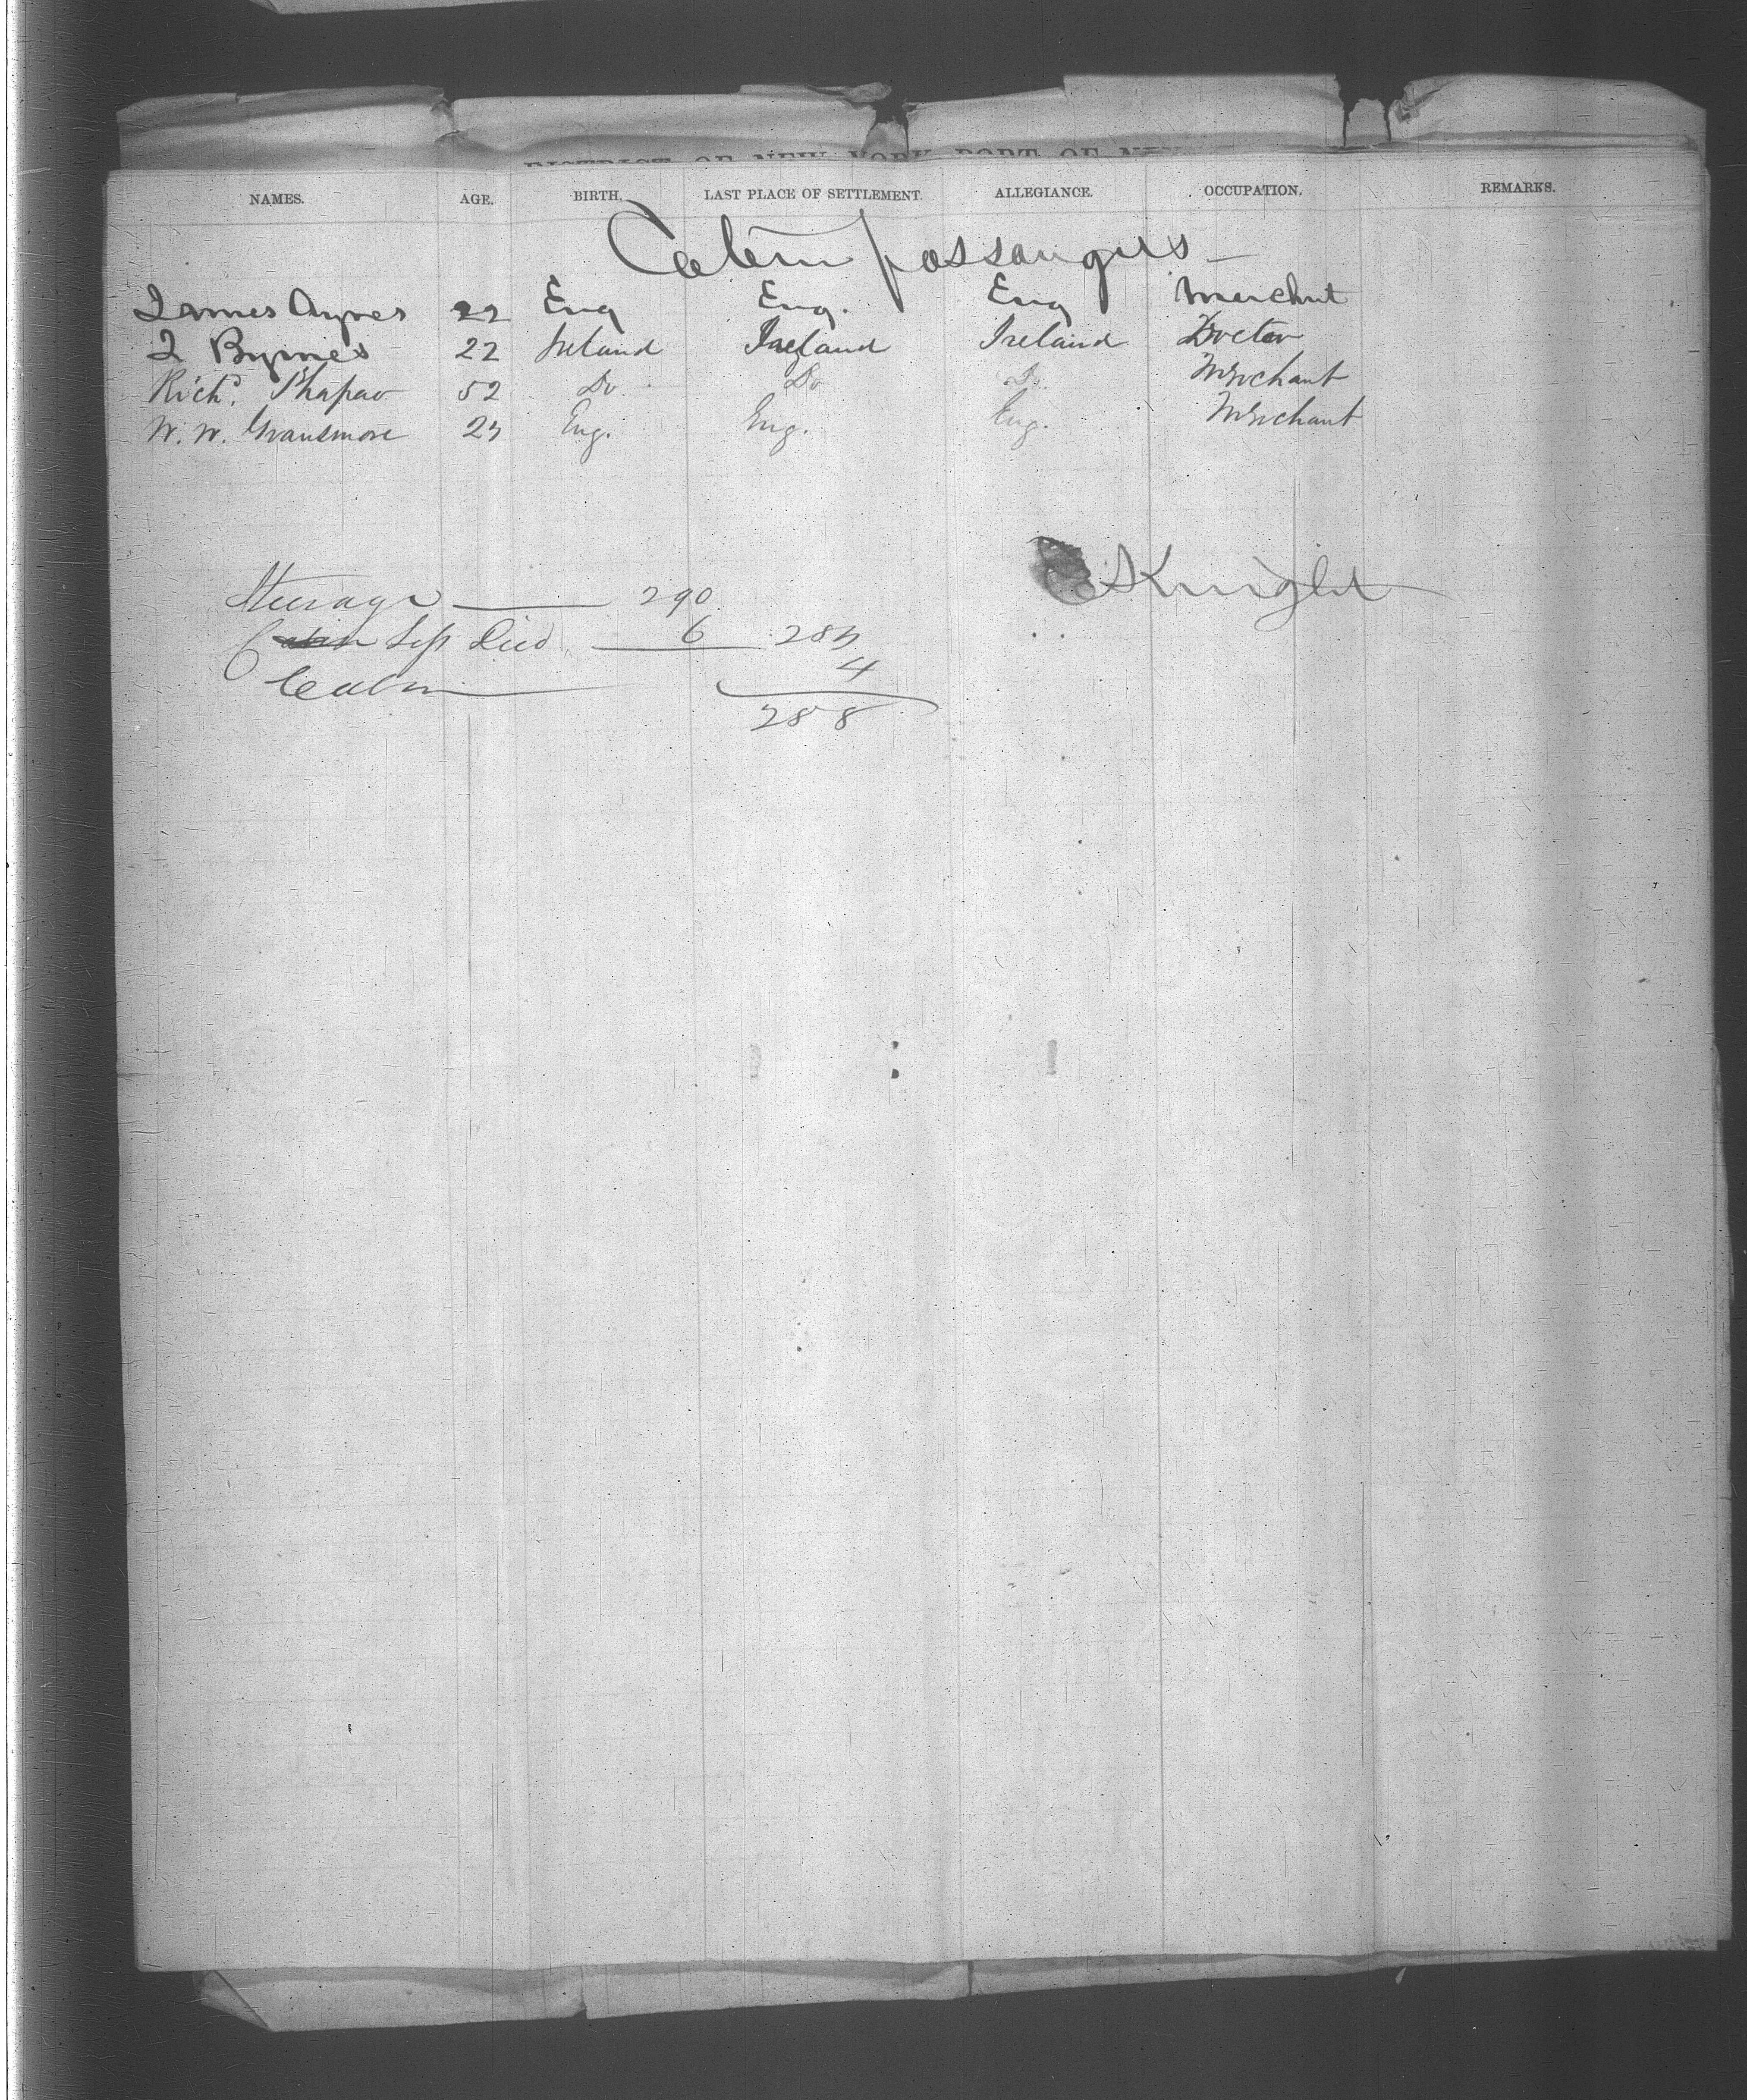 DISTRICT OF NEW YORK PORT OF NEW
NAMES. AGE. BIRTH. LAST PLACE OF SETTLEMENT. ALLEGIANCE. OCCUPATION. REMARKS.
Cabin passangers
James Aynes 22 Eng Eng. Eng Merchnt
J Byrnes 22 Ireland Ireland Ireland Doctor
Richd. 52 Do Do Do Merchant
W. W. Gransmore 25 Eng. Eng. Eng. Merchant
Knight
Steerage 290
Less Died 6 284
Cabin 4
288